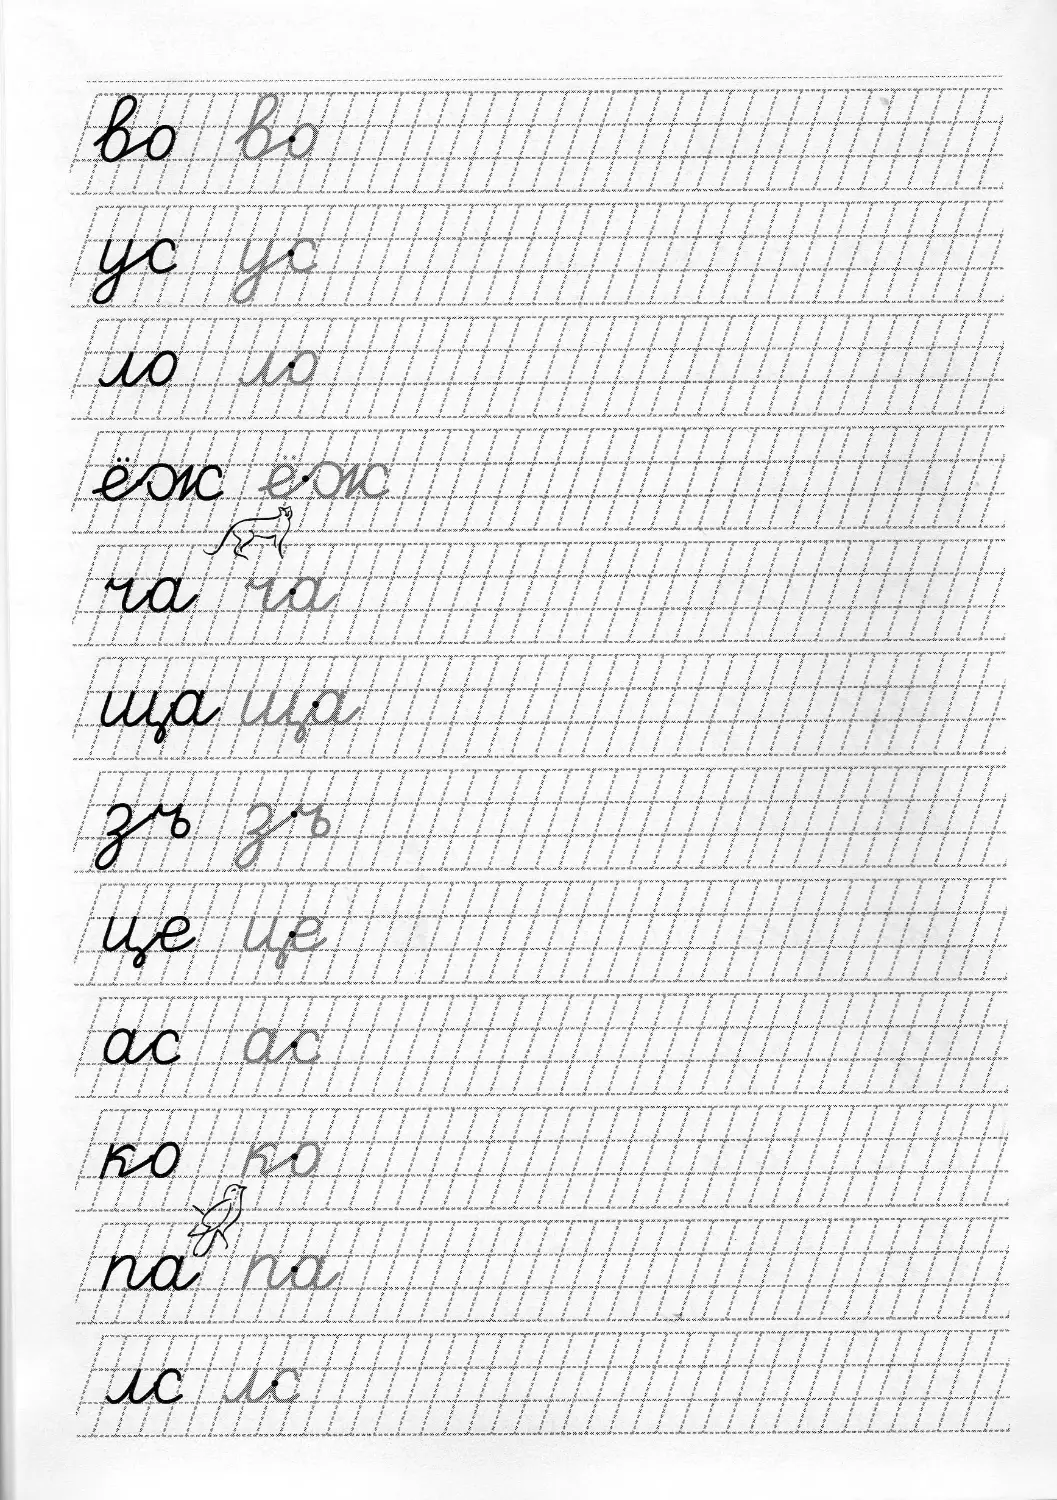 во во
ус ус
ло ло
ёж ёж
ча ча
ща ща
зъ зъ
це це
ас ас
ко ко
па па
лс лс